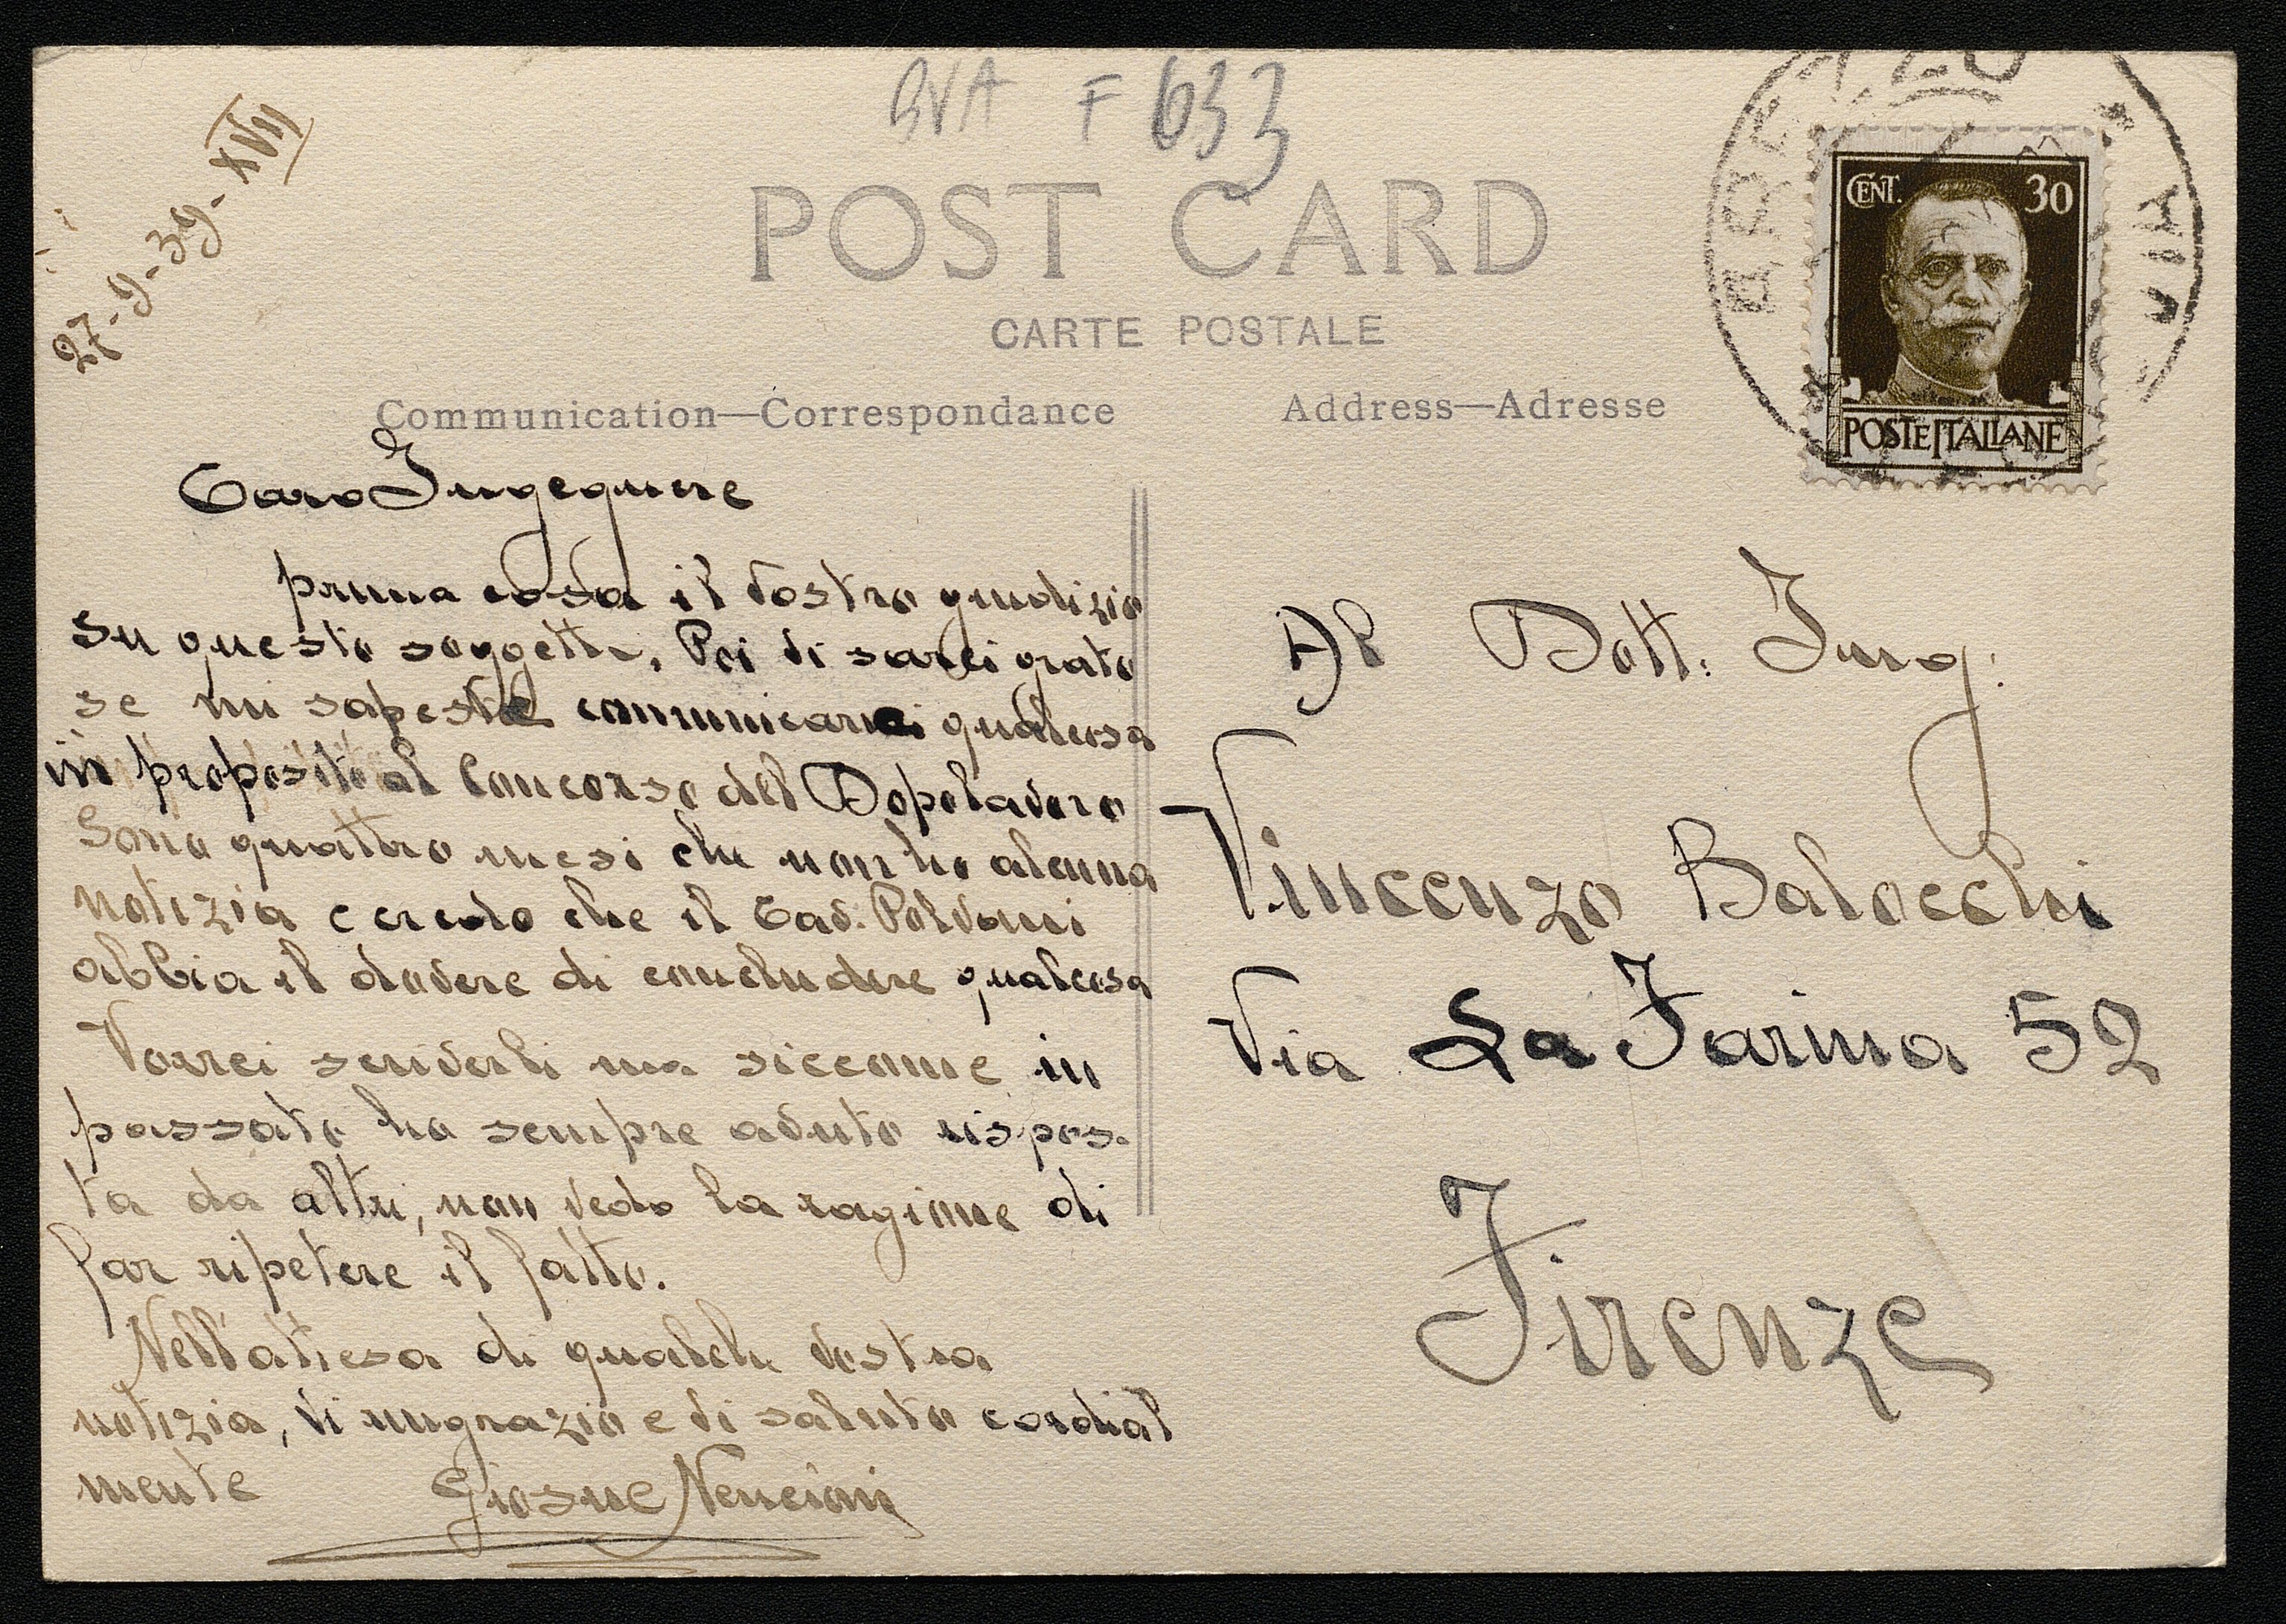 BVA F 633
27-9-39-XVII
POST CARD
CARTE POSTALE
Communication—Correspondance
Address—Adresse
CENT. 30
POSTE ITALIANE
Caro Ingegnere
prima cosa il vostro giudizio
su questo soggetto. Poi vi sarei grato
se mi sapeste comunicarmi qualcosa
in proposito al Concorso del Dopolavoro
Sono quattro mesi che non ho alcuna
notizia e credo che il Cav. Poldoni
abbia il dovere di concludere qualcosa
Vorrei scriverli ma siccome in
passato ho sempre avuto rispos-
ta da altri, non vedo la ragione di
far ripetere il fatto.
Nell'attesa di qualche vostra
notizia, vi ringrazio e vi saluto cordial
mente Giosue Nencioni
Al Dott: Ing:
Vincenzo Balocchi
Via La Farina 52
Firenze